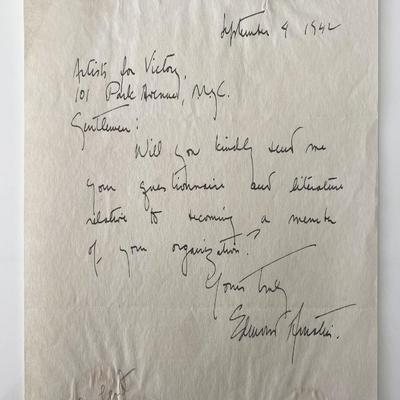 September 4 1942
Artists for Victory,
101 Park Avenue, N.Y.C.
Gentlemen:
Will you kindly send me
your questionnaire and literature
relative to becoming a member
of your organization?
Yours truly